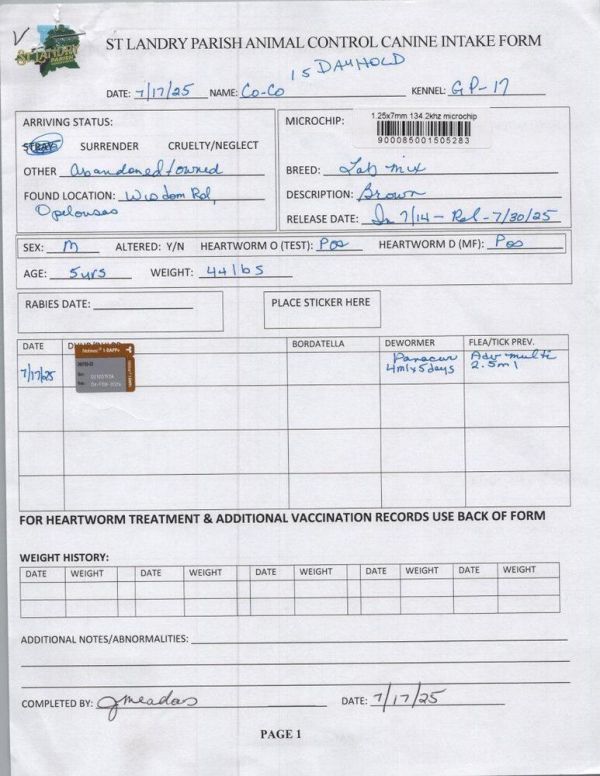 V
ST LANDRY
PARISH
ST LANDRY PARISH ANIMAL CONTROL CANINE INTAKE FORM
15 DAY HOLD
DATE: 7/17/25 NAME: Co-Co KENNEL: GP-17
ARRIVING STATUS:
STRAY SURRENDER CRUELTY/NEGLECT
OTHER Abandoned/owned
FOUND LOCATION: Wisdom Rd,
Opelousas
MICROCHIP: 1.25x7mm 134.2khz microchip
900085001505283
BREED: Lab mix
DESCRIPTION: Brown
RELEASE DATE: In 7/14 - Rel - 7/30/25
SEX: M ALTERED: Y/N HEARTWORM O (TEST): Pos HEARTWORM D (MF): Pos
AGE: 5yrs WEIGHT: 44lbs
RABIES DATE:
PLACE STICKER HERE
DATE BORDATELLA DEWORMER FLEA/TICK PREV.
7/17/25 Panacur Adv multi
4ml x 5days 2.5ml
FOR HEARTWORM TREATMENT & ADDITIONAL VACCINATION RECORDS USE BACK OF FORM
WEIGHT HISTORY:
DATE WEIGHT DATE WEIGHT DATE WEIGHT DATE WEIGHT DATE WEIGHT
ADDITIONAL NOTES/ABNORMALITIES:
COMPLETED BY: J Meadows DATE: 7/17/25
PAGE 1